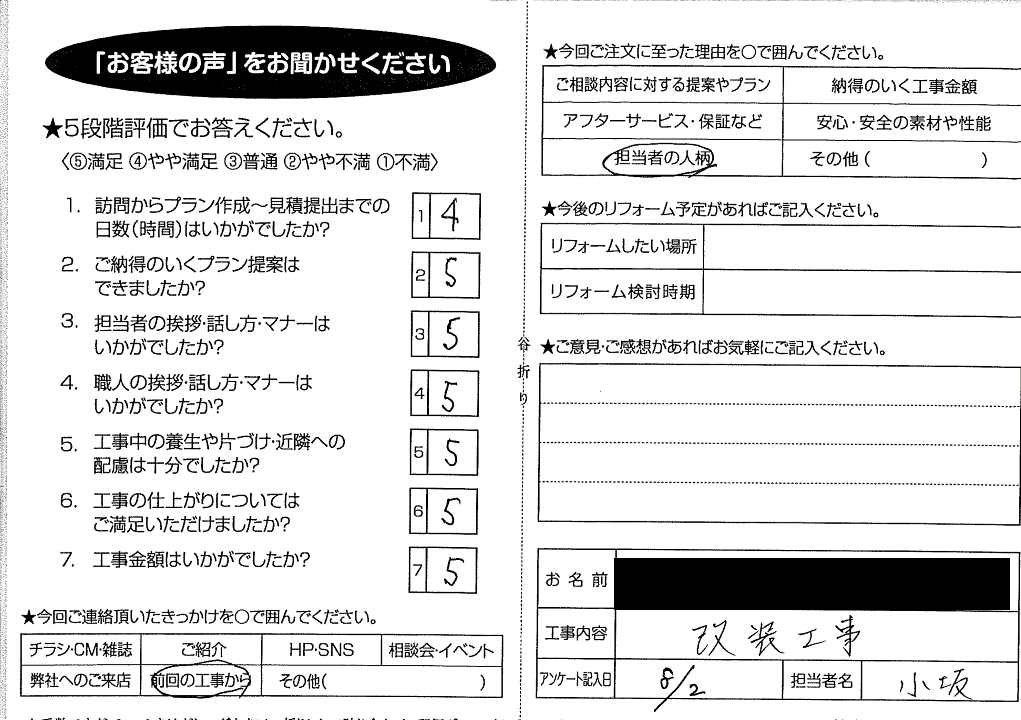 「お客様の声」をお聞かせください
★5段階評価でお答えください。
〈⑤満足 ④やや満足 ③普通 ②やや不満 ①不満〉
1. 訪問からプラン作成～見積提出までの
日数(時間)はいかがでしたか?
1 4
2. ご納得のいくプラン提案は
できましたか?
2 5
3. 担当者の挨拶・話し方・マナーは
いかがでしたか?
3 5
4. 職人の挨拶・話し方・マナーは
いかがでしたか?
4 5
5. 工事中の養生や片づけ・近隣への
配慮は十分でしたか?
5 5
6. 工事の仕上がりについては
ご満足いただけましたか?
6 5
7. 工事金額はいかがでしたか?
7 5
★今回ご連絡頂いたきっかけを〇で囲んでください。
チラシ・CM・雑誌 ご紹介 HP・SNS 相談会・イベント
弊社へのご来店 前回の工事から その他( )
谷折り
★今回ご注文に至った理由を〇で囲んでください。
ご相談内容に対する提案やプラン 納得のいく工事金額
アフターサービス・保証など 安心・安全の素材や性能
担当者の人柄 その他( )
★今後のリフォーム予定があればご記入ください。
リフォームしたい場所
リフォーム検討時期
★ご意見・ご感想があればお気軽にご記入ください。
お名前
工事内容 改装工事
アンケート記入日 8/2 担当者名 小坂